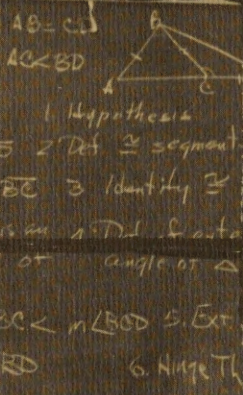 AB = CD
B
AC<BD
A C
1 Hypothesis
5 2 Def ≅ segment
BC 3 Identity ≅
is an 4 Def of exte
of angle of △
BC < m∠BCD 5. Ext.
BD 6. Hinge Th